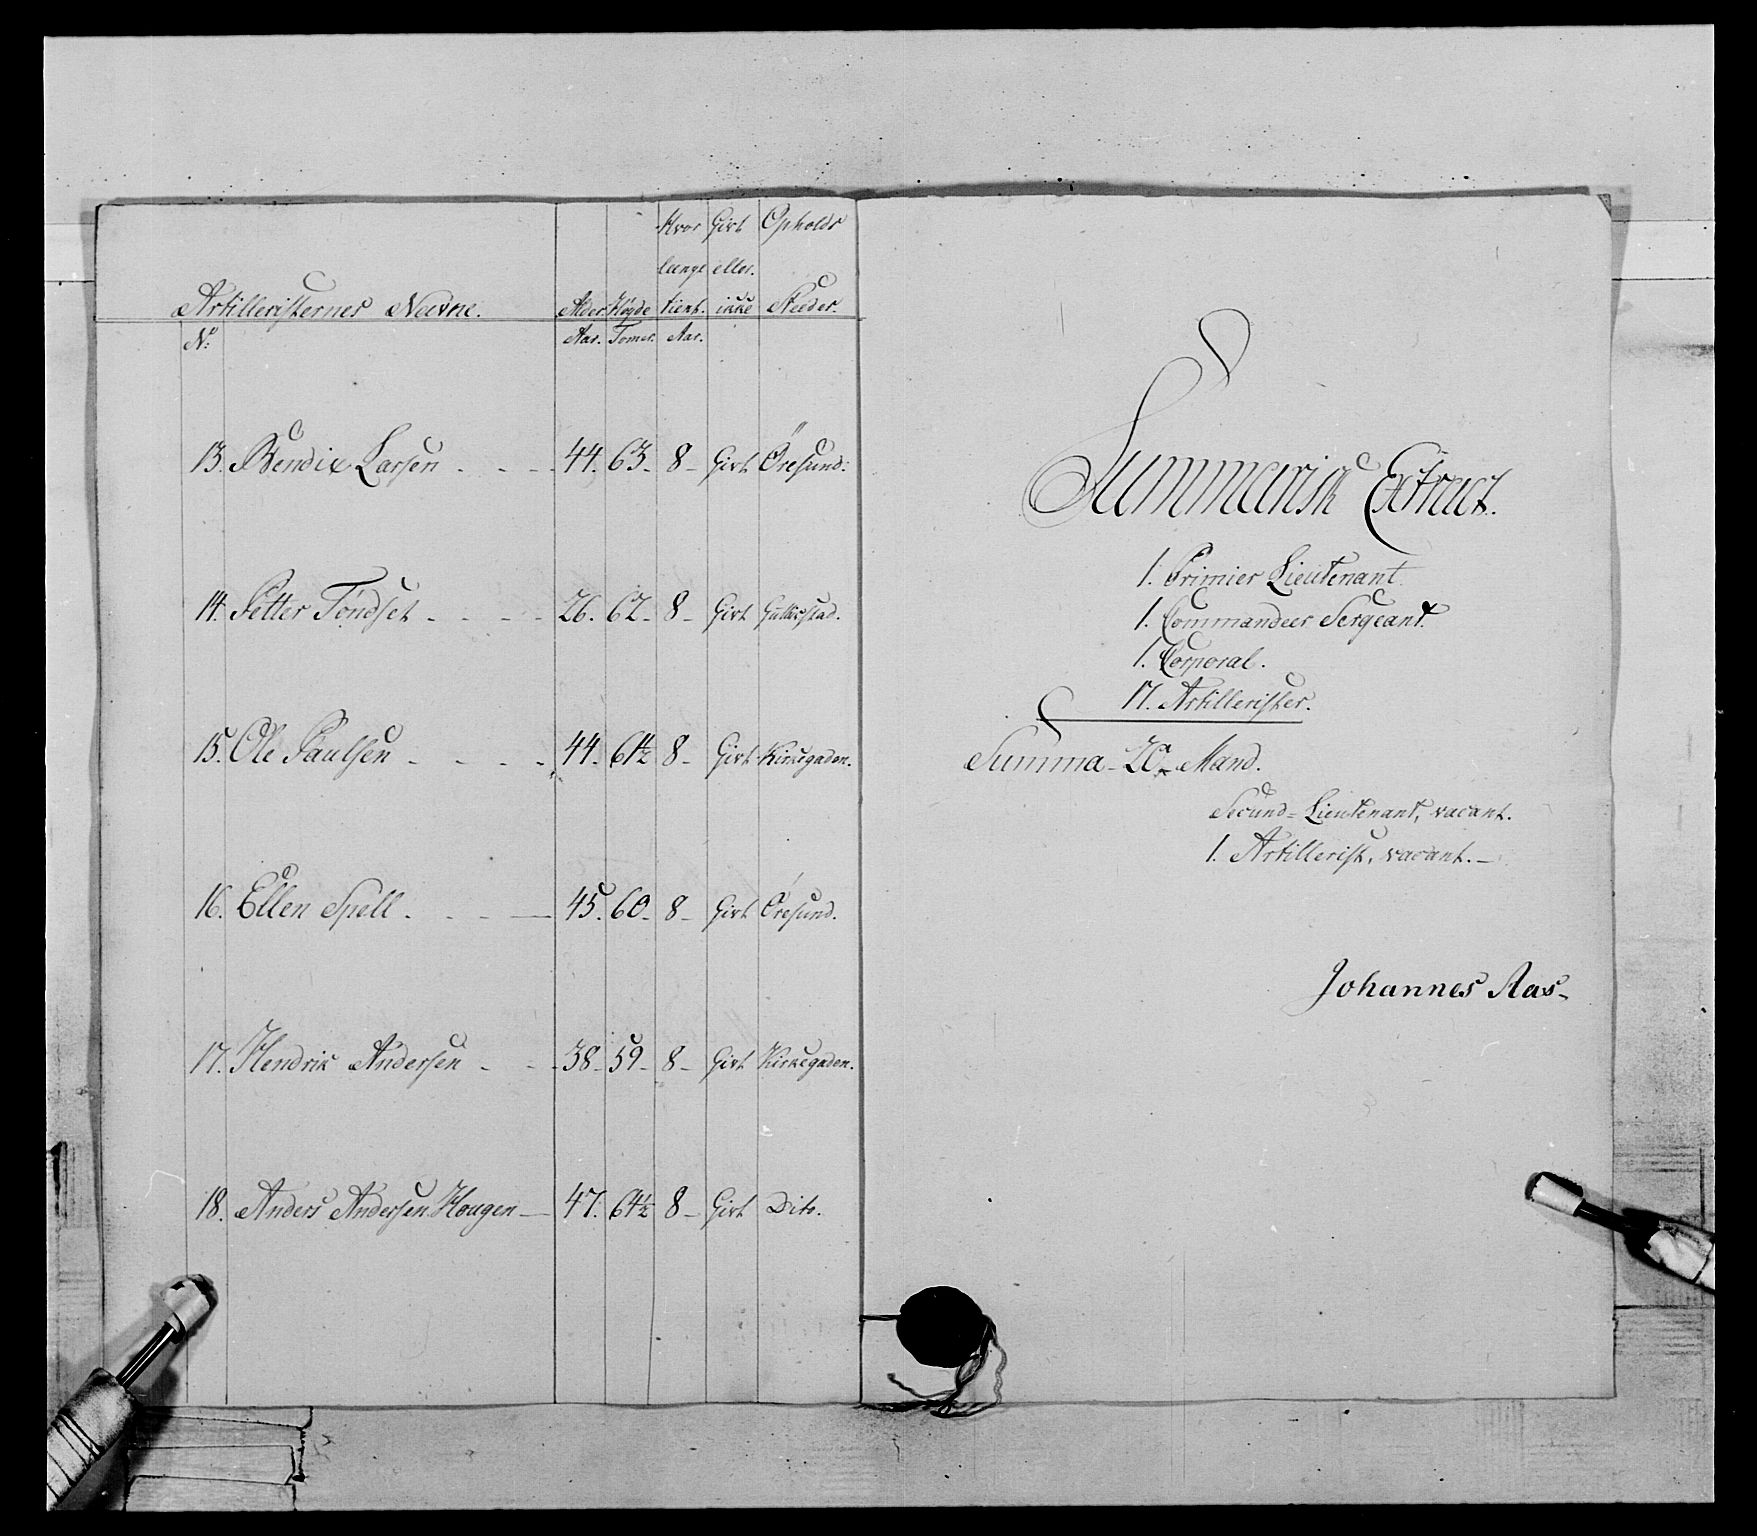 Hvor Girt Opholds
længe eller
Artilleristernes Navne. Alder Høyde tient. ikke Stæder.
No: Aar. Tomer. Aar.
13. Bendix Larsen - - - 44. 63 - 8 - Girt Öresund:
14. Petter Töndset - - - - 26. 62 - 8 - Girt
15. Ole Paulsen - - - - 44. 61½ 8 - Girt Kirkegaden.
16. Ellen Spell - - - - 45. 60 - 8 - Girt Öresund.
17. Hendrik Andersen - - - 38 - 59 - 8 - Girt Kirkegaden.
18. Anders Andersen Hougen - 47. 61½ 8 - Girt Dito.
Summarisk Extract.
1. Primier Lieutenant
1. Commandeer Sergeant
1. Corporal.
17. Artillerister.
Summa - 20 - Mand.
Secund = Lieutenant, vacant.
1. Artillerist, vacant. -
Johannes Aas -